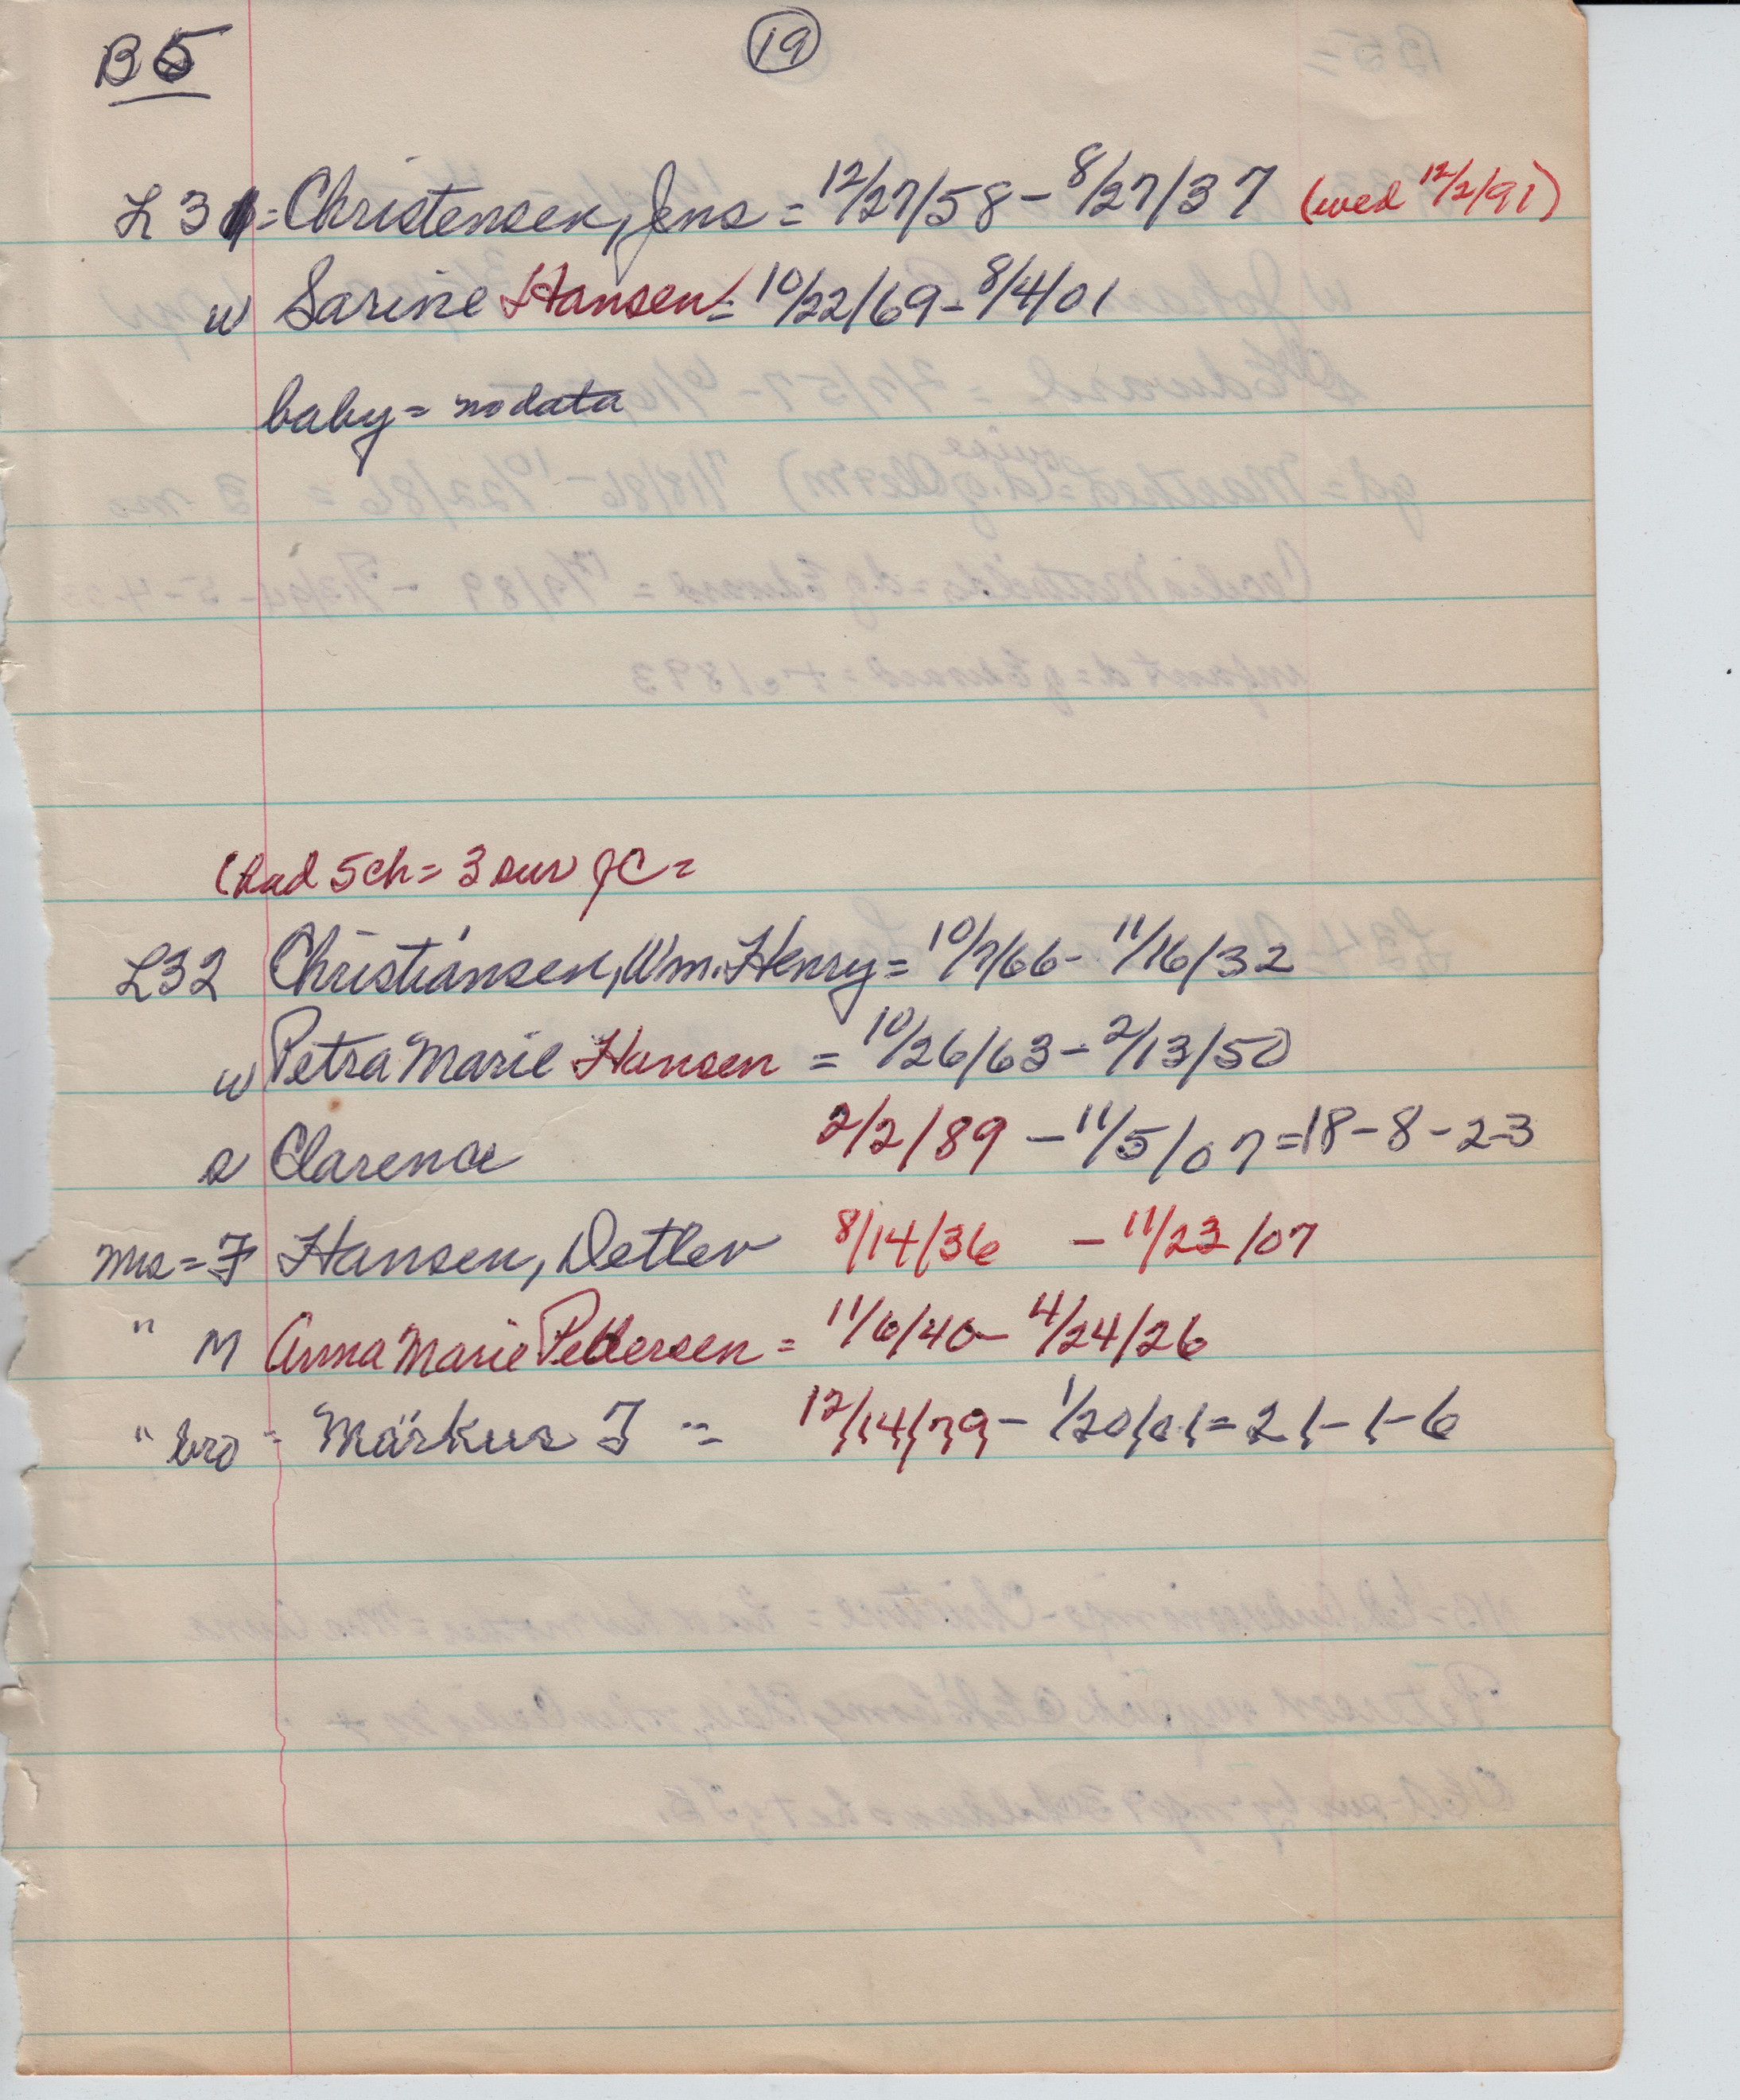 B5
19
L31 = Christensen, Jens = 12/27/58 - 8/27/37 (wed 12/2/91)
w Sarine Hansen = 10/22/69 - 8/4/01
baby = no data
(had 5 ch = 3 sur JC =
L32 Christiansen, Wm. Henry = 10/7/66 - 11/16/32
w Petra Marie Hansen = 10/26/63 - 2/13/50
s Clarence 2/2/89 - 11/5/07 = 18-8-23
Mrs = F Hansen, Detlev 8/14/36 - 11/23/07
" M Anna Marie Pedersen = 11/6/40 - 4/24/26
" bro = Markus F = 12/14/79 - 1/20/01 = 21-1-6